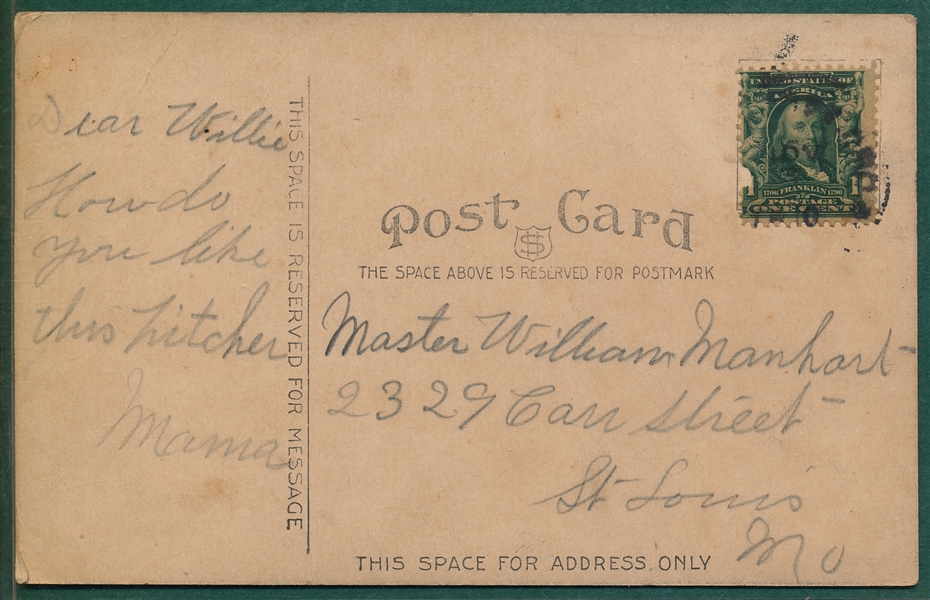 Dear Willie
How do
you like
this pitcher
Mama
THIS SPACE IS RESERVED FOR MESSAGE
UNITED STATES OF
AMERICA
1706 FRANKLIN 1790
1 POSTAGE 1
ONE CENT
Post Card
THE SPACE ABOVE IS RESERVED FOR POSTMARK
Master William Manhart
2329 Carr street
St Louis
Mo
THIS SPACE FOR ADDRESS ONLY